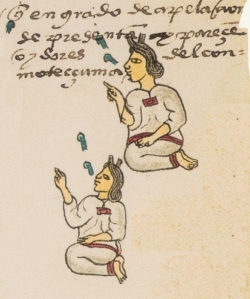 q̃ en grado de apelaçion
se presentã y pareçẽ
oydores del con-
motecçuma